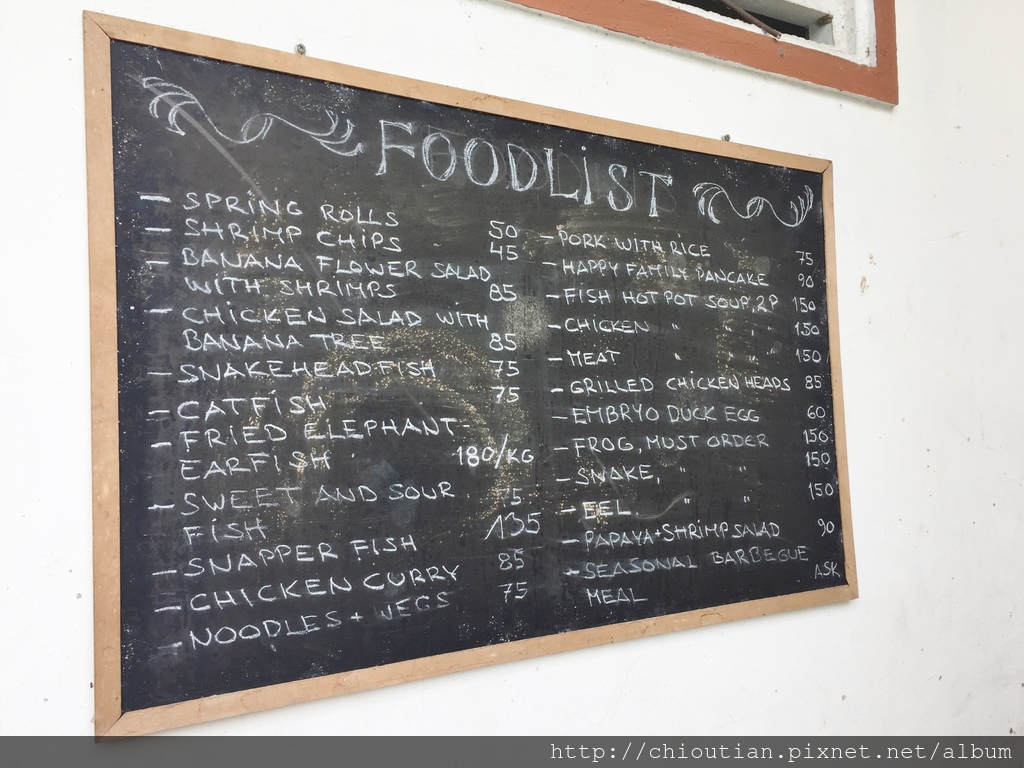 FOODLIST
- SPRING ROLLS 50
- SHRIMP CHIPS 45
- BANANA FLOWER SALAD
WITH SHRIMPS 85
- CHICKEN SALAD WITH
BANANA TREE 85
- SNAKEHEADFISH 75
- CATFISH 75
- FRIED ELEPHANT-
EARFISH 180/KG
- SWEET AND SOUR
FISH 75
- SNAPPER FISH 135
- CHICKEN CURRY 85
- NOODLES + VEGS 75
- PORK WITH RICE 75
- HAPPY FAMILY PANCAKE 90
- FISH HOT POT SOUP, 2P 150
- CHICKEN " " " " 150
- MEAT " " " " 150
- GRILLED CHICKEN HEADS 85
- EMBRYO DUCK EGG 60
- FROG, MUST ORDER 150
- SNAKE, " " 150
- EEL, " " 150
- PAPAYA+SHRIMP SALAD 90
- SEASONAL BARBEGUE
MEAL ASK
http://chioutian.pixnet.net/album